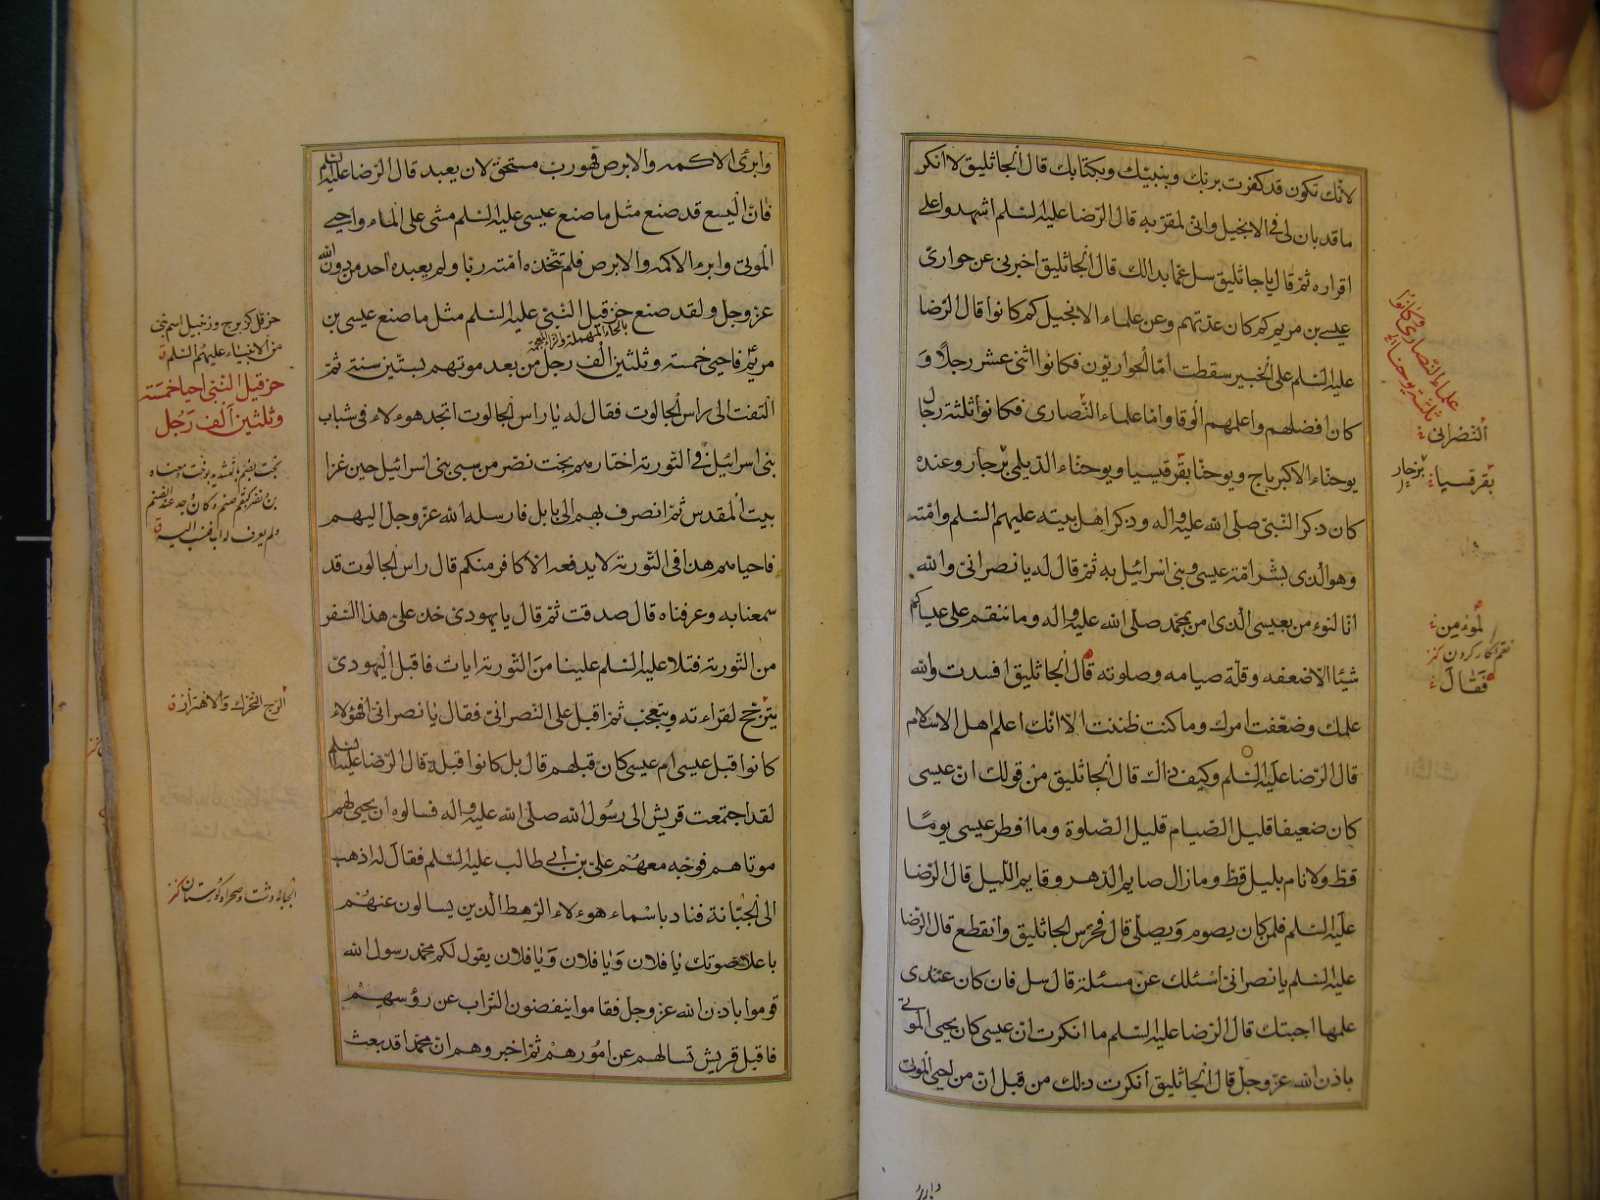 لانك تكون قد كفرت بربك وبنبيك وبكتابك قال الجاثليق لا انكر
ما قد بان لى فى الانجيل وانى لمقر به قال الرضا عليه السلم اشهدوا على
اقراره ثم قال يا جاثليق سل عما بدالك قال الجاثليق اخبرنى عن حوارى
عيسى بن مريم كم كان عدتهم وعن علماء الانجيل كم كانوا قال الرضا
عليه السلم على الخبير سقطت اما الحواريون فكانوا اثنى عشر رجلا و
كان افضلهم واعلمهم الوقا واما علماء النصارى فكانوا ثلثة رجال
يوحناء الاكبر باج ويوحنا بقرقيسيا ويوحناء الديلمى بزجار وعنده
كان ذكر النبى صلى الله عليه واله وذكر اهل بيته عليهم السلم وامته
وهو الذى بشر امة عيسى وبنى اسرائيل به ثم قال له يا نصرانى والله
انا لنؤمن بعيسى الذى امن بمحمد صلى الله عليه واله وما ننقم على عيساكم
شيئا الا ضعفه وقلة صيامه وصلوته قال الجاثليق افسدت والله
علمك وضعفت امرك وما كنت ظننت الا انك اعلم اهل الاسلام
قال الرضا عليه السلم وكيف ذاك قال الجاثليق من قولك ان عيسى
كان ضعيفا قليل الصيام قليل الصلوة وما افطر عيسى يوما
قط ولا نام بليل قط وما زال صايم الدهر وقايم الليل قال الرضا
عليه السلم فلمن كان يصوم ويصلى قال فخرس الجاثليق وانقطع قال الرضا
عليه السلم يا نصرانى اسئلك عن مسئلة قال سل فان كان عندى
علمها اجبتك قال الرضا عليه السلم ما انكرت ان عيسى كان يحيى الموتى
باذن الله عز وجل قال الجاثليق انكرت ذلك من قبل ان من احيى الموتى
علماء النصارى وكانوا
ثلثة يوحنا
النصرانى
بقرقسياء بزجار
لمؤمن
نقم انكار كردن كنز
فقال
وابرئ الاكمه والابرص فهو رب مستحق لان يعبد قال الرضا عليه السلم
فان اليسع قد صنع مثل ما صنع عيسى عليه السلم مشى على الماء واحيى
الموتى وابرء الاكمه والابرص فلم تتخذه امته ربا ولم يعبده احد من دون الله
عز وجل ولقد صنع حزقيل النبى عليه السلم مثل ما صنع عيسى بن
بالحاء المهملة والزاء المعجمة
مريم فاحيى خمسة وثلثين الف رجل من بعد موتهم بستين سنة ثم
التفت الى راس الجالوت فقال له يا راس الجالوت اتجد هوءلاء فى شباب
بنى اسرائيل فى التورية اختارهم بخت نصر من سبى بنى اسرائيل حين غزا
بيت المقدس ثم انصرف بهم الى بابل فارسله الله عز وجل اليهم
فاحياهم هذا فى التورية لا يدفعه الا كافر منكم قال راس الجالوت قد
سمعنا به وعرفناه قال صدقت ثم قال يا يهودى خذ على هذا السفر
من التورية فتلا عليه السلم علينا من التورية ايات فاقبل اليهودى
يترجح لقراءته ويتعجب ثم اقبل على النصرانى فقال يا نصرانى افهؤلاء
كانوا قبل عيسى ام عيسى كان قبلهم قال بل كانوا قبله قال الرضا عليه السلم
لقد اجتمعت قريش الى رسول الله صلى الله عليه واله فسالوه ان يحيى لهم
موتاهم فوجه معهم على بن ابى طالب عليه السلم فقال له اذهب
الى الجبانة فناد باسماء هوءلاء الرهط الذين يسالون عنهم
باعلا صوتك يا فلان ويا فلان ويا فلان يقول لكم محمد رسول الله
قوموا باذن الله عز وجل فقاموا ينفضون التراب عن رؤسهم
فاقبل قريش تسالهم عن امورهم ثم اخبروهم ان محمدا قد بعث
حزقل كزبرج وزنجبيل اسم نبى
من الانبياء عليهم السلم
حزقيل النبى احيا خمسة
وثلثين الف رجل
الزج التحرك والاهتزازة
الجبانة دشت وصحرا وكورستان كنز